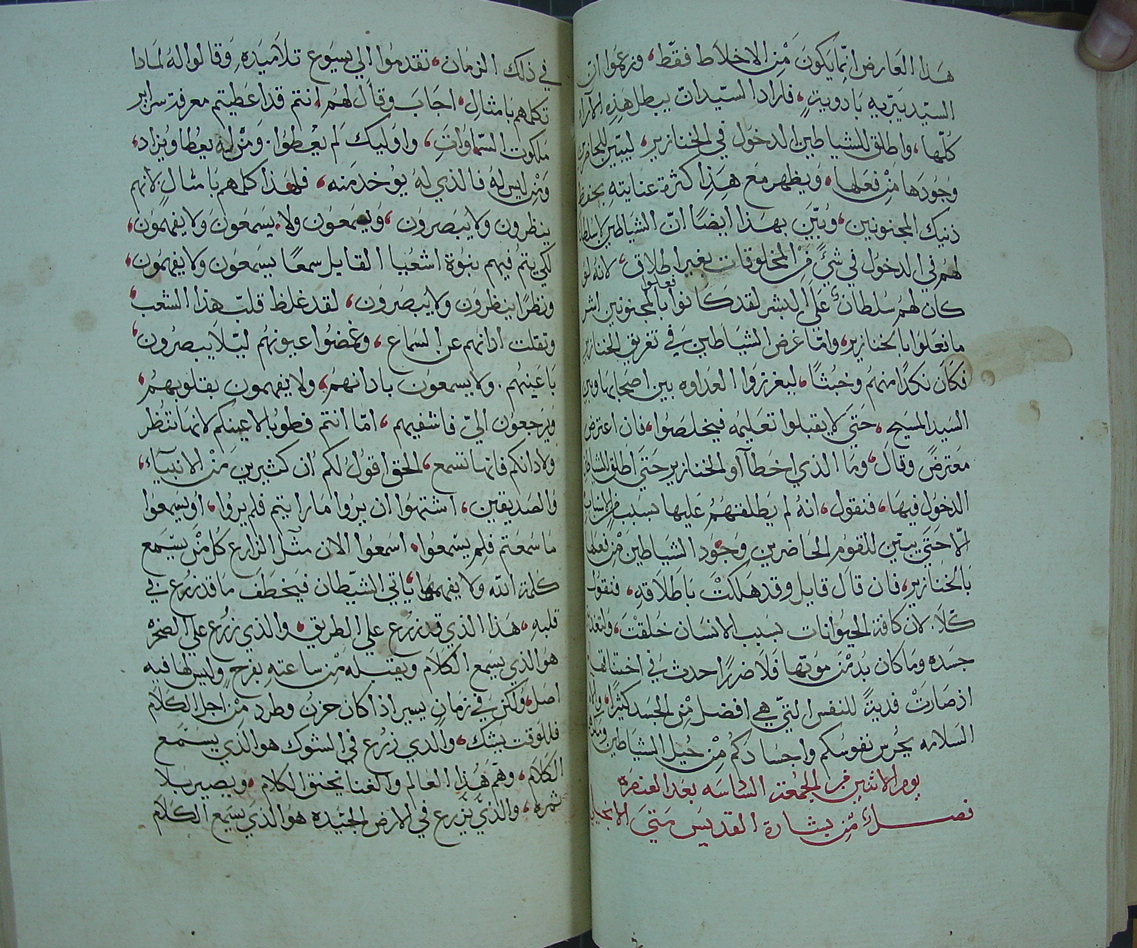 هذا العارض انما يكون من الاخلاط فقط، وزعموا ان
السيد يبريه بادوية، فاراد السيد ان يبطل هذه الارا
كلها، واطلق للشياطين الدخول في الخنازير، ليتبين للحاضرين
وجودها من فعلها، ويظهر مع هذا كثرة عنايته بحفظ
ذنيك المجنونين، وبيّن بهذا ايضًا انّ الشياطين لا سلطان
لهم في الدخول في شئ من المخلوقات بغير اطلاق، لانه لو
كان لهم سلطان على البشر لقد كانوا فعلوا بالمجنونين اشر
ما فعلوا بالخنازير، وامّا غرض الشياطين في تغريق الخنازير
فكان نكرًا منهم وخبثًا، ليغرزوا العداوه بين اصحابها وبين
السيد المسيح، حتى لا يقبلوا تعليمه فيخلصوا، فان اعترض
معترض وقال، وما الذي اخطأ اولو الخنازير حتى اطلق للشياطين
الدخول فيها، فنقول، انه لم يطلقهم عليها بسبب
الّا حتى يبيّن للقوم الحاضرين وجود الشياطين من فعلها
بالخنازير، فان قال قايل وقد هلكت باطلاقه، فنقول
كلّا لان كافة الحيوانات بسبب الانسان خلقت،
جسده وما كان بدّ من موتها فلا ضررًا احدث في اختناقها
اذ صارت فديةً للنفس التي هي افضل من الجسد كثيرًا،
السلامه يحرس نفوسكم واجسادكم من حيل الشياطين
يوم الاثنين من الجمعة السادسه بعد العنصره
فصل من بشارة القديس متى الانجيلي
في ذلك الزمان، تقدموا الى يسوع تلاميذه وقالوا له لماذا
تكلمهم بامثال، اجاب وقال لهم انتم قد اعطيتم معرفة سراير
ملكوت السماوات، واوليك لم يُعطوا، ومن له يعطا ويزاد،
ومن ليس له فالذي له يوخد منه، فلهذا كلمهم بامثال لانهم
ينظرون ولا يبصرون، ويسمعون ولا يسمعون ولا يفهمون،
لكي يتم فيهم نبوة اشعيا القايل سمعًا يسمعون ولا يفهمون،
ونظرًا ينظرون ولا يبصرون، لقد غلظ قلب هذا الشعب
وتقلت ادانهم عن السماع، وغمضوا عيونهم ليلا يبصرون
باعينهم، ولا يسمعون بادانهم، ولا يفهمون بقلوبهم،
ويرجعون اليّ فاشفيهم، امّا انتم فطوبا لاعينكم لانها تنظر
ولادانكم فانها تسمع، الحق اقول لكم ان كثيرين من الانبياء،
والصديقين، اشتهوا ان يروا ما رايتم فلم يروا، ويسمعوا
ما سمعتم فلم يسمعوا، اسمعوا الان مثل الزارع كل من يسمع
كلمة الله ولا يفهمها ياتي الشيطان فيخطف ما قد زرع في
قلبه، هذا الذي قد زرع على الطريق، والذي زرع على الصخره
هو الذي يسمع الكلام ويقبله من ساعته بفرح، وليس لها فيه
اصل، ولكن في زمان يسير اذا كان حزن وطرد من اجل الكلام
فللوقت يشك، والذي زرع في الشوك هو الذي يسمع
الكلام، وهم هذا العالم والغنا يخنق الكلام، ويصير بلا
ثمره، والذي زرع في الارض الجيده هو الذي يسمع الكلام